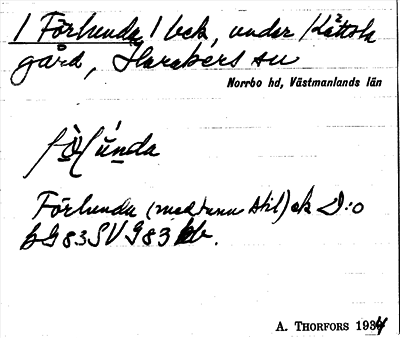 1 Förlunda 1 bck, under Kättsta
gård, Harakers sn
Norrbo hd, Västmanlands län
Förlunda (med tunn stil) ek D:o
bG83SV G83
A. THORFORS 1934